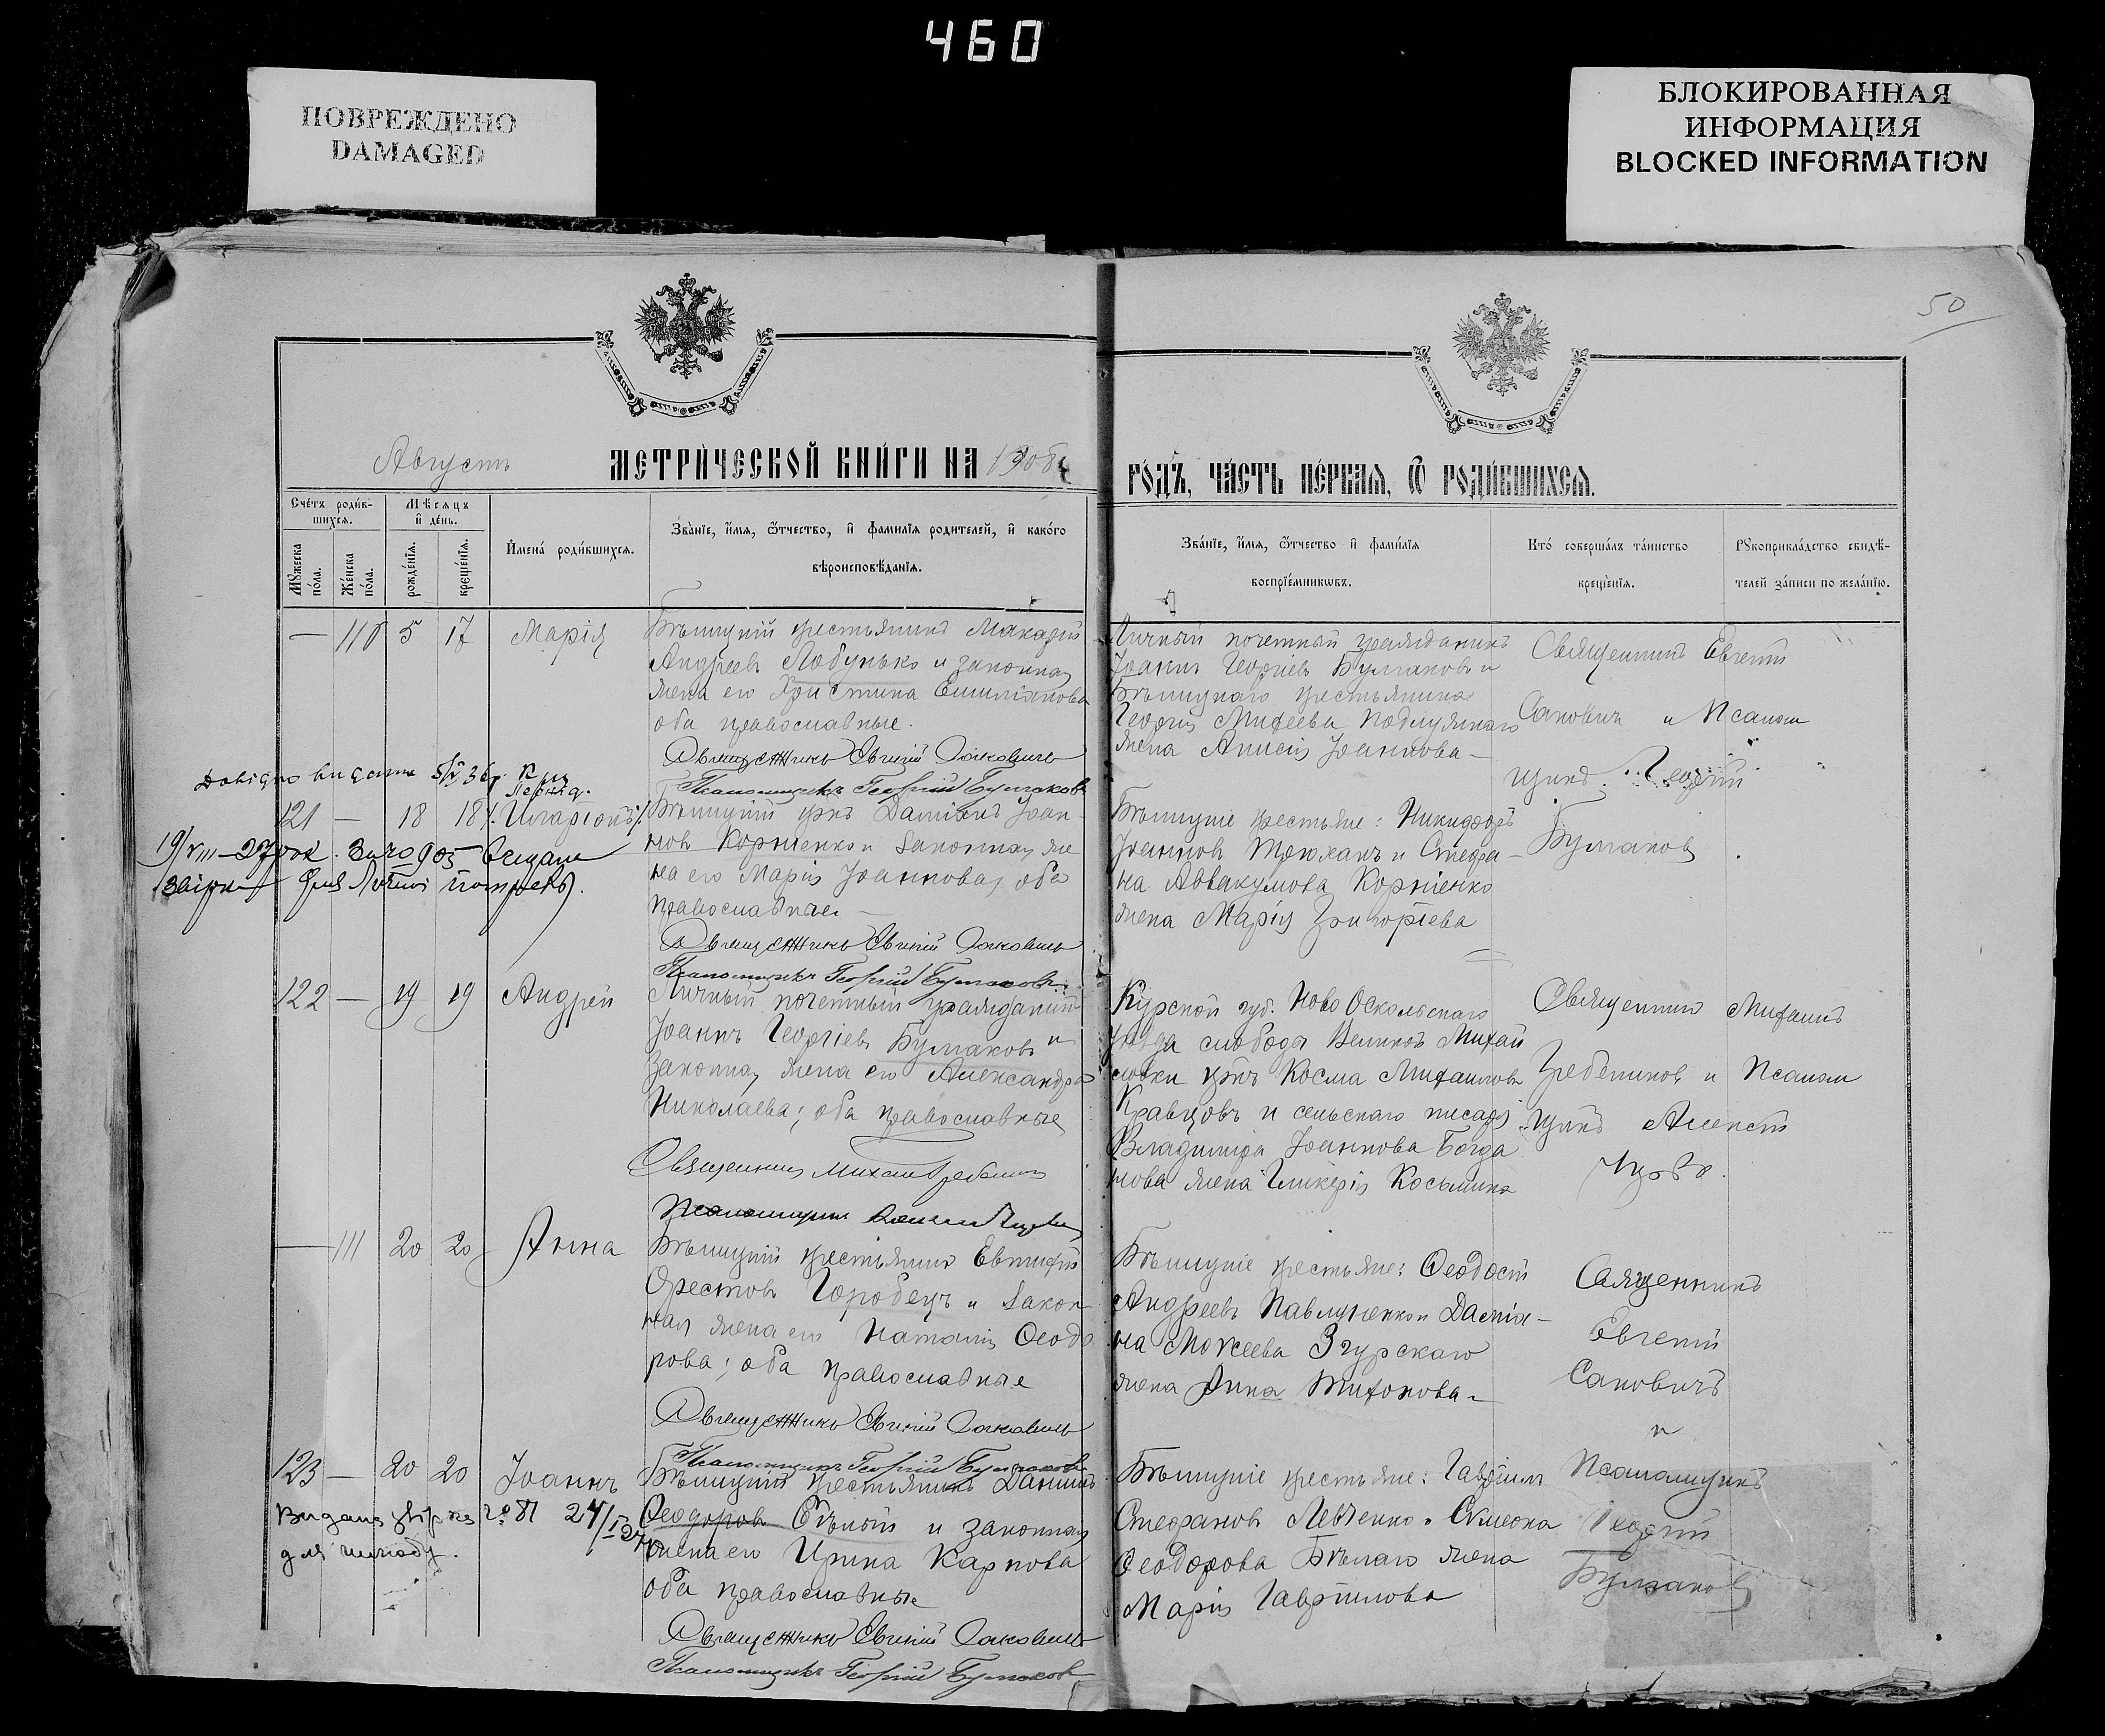 460
ПОВРЕЖДЕНО
DAMAGED
БЛОКИРОВАННАЯ
ИНФОРМАЦИЯ
BLOCKED INFORMATION
50
Августъ
МЕТРИЧЕСКОЙ КНИГИ НА 1908
ГОДЪ, ЧАСТЬ ПЕРВАЯ, Ѿ РОДИВШИХСЯ.
Счетъ родив-
шихся.
Мѣсяцъ
и день.
Мужеска
пола.
Женска
пола.
рожденія.
крещенія.
Имена родившихся.
Званіе, имя, ѿчество, и фамилія родителей, и какого
вѣроисповѣданія.
Званіе, имя, ѿчество и фамилія
воспріемниковъ.
Кто совершалъ таинство
крещенія.
Рукоприкладство свидѣ-
телей записи по желанію.
— 110 5 17 Марія
крестьянинъ
Андреевъ Лобунько и законная
жена его Христина Емиліанова
оба православные.
Священникъ Евгеній Сакович
Псаломщикъ Георгій Булгаковъ
Личный почетный гражданинъ
Іоаннъ Георгіевъ Булгаковъ и
крестьянина
Георгія Михеева
жена Анисія Іоаннова —
Священникъ Евгеній
Саковичъ и Псалом
щикъ Георгій
Булгаковъ
121 — 18 18 Иларіонъ
крнъ Даміанъ Іоан-
новъ Корніенко и законная же
на его Марія Іоаннова, оба
православные —
Священникъ Евгеній Сакович
Псаломщикъ Георгій Булгаковъ
крестьяне: Никифоръ
Іоанновъ и Стефа-
на Аввакумова Корніенко
жена Марія Григорьева
19/VIII — 27 рок.
122 — 19 19 Андрей
Личный почетный гражданинъ
Іоаннъ Георгіевъ Булгаковъ и
законная жена его Александра
Николаева; оба православные
Священникъ Михаилъ Гребеников
Псаломщикъ
Курской губ. Ново Оскольскаго
уѣзда слобода Велико Михай
ловки крнъ Косма Михаиловъ
Кравцовъ и сельскаго писаря
Владиміра Іоаннова Богда
нова жена Гликерія Косьмина
Священникъ Михаилъ
Гребениковъ и Псалом
щикъ Алексѣй
— 111 20 20 Анна
крестьянинъ Евтихій
Орестовъ Городецъ и закон
ная жена его Наталія Ѳеодо
рова; оба православные
Священникъ Евгеній Сакович
Псаломщикъ Георгій Булгаковъ
крестьяне: Ѳеодосій
Андреевъ Павлученко и Даміа-
на Моисеева Згурскаго
жена Анна Тихонова —
Священникъ
Евгеній
Саковичъ
и
Псаломщикъ
Георгій
Булгаковъ
123 — 20 20 Іоаннъ
крестьянинъ Даніилъ
Ѳеодоровъ и законная
жена его Ирина Карпова
оба православные
Священникъ Евгеній Сакович
Псаломщикъ Георгій Булгаковъ
крестьяне: Гавріилъ
Стефановъ Левченко и Симеона
Ѳеодорова Бѣлаго жена
Марія Гавріилова